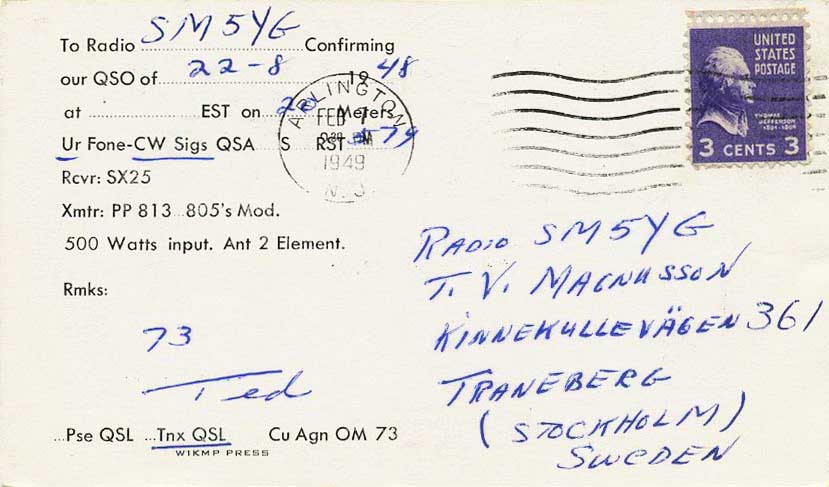 To Radio SM5YG Confirming
our QSO of 22-8 19 48
at EST on 20 Meters
Ur Fone-CW Sigs QSA S RST 579
Rcvr: SX25
Xmtr: PP 813...805's Mod.
500 Watts input. Ant 2 Element.
Rmks:
73
Ted
...Pse QSL ...Tnx QSL Cu Agn OM 73
W1KMP PRESS
ARLINGTON
FEB 7
1949
N. J.
UNITED
STATES
POSTAGE
THOMAS
JEFFERSON
1801-1809
3 CENTS 3
RADIO SM5YG
T. V. MAGNUSSON
KINNEKULLEVÄGEN 361
TRANEBERG
(STOCKHOLM)
SWEDEN